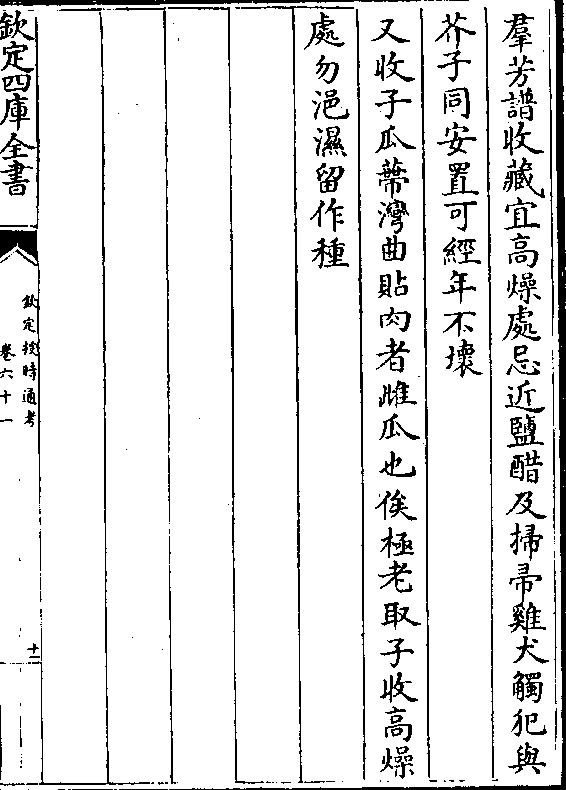 羣芳譜收藏宜高燥處忌近鹽醋及掃帚雞犬觸犯與
芥子同安置可經年不壞
又收子瓜蔕灣曲貼肉者雌瓜也俟極老取子收高燥
處勿浥濕留作種
欽定四庫全書
欽定授時通考
卷六十一
十二